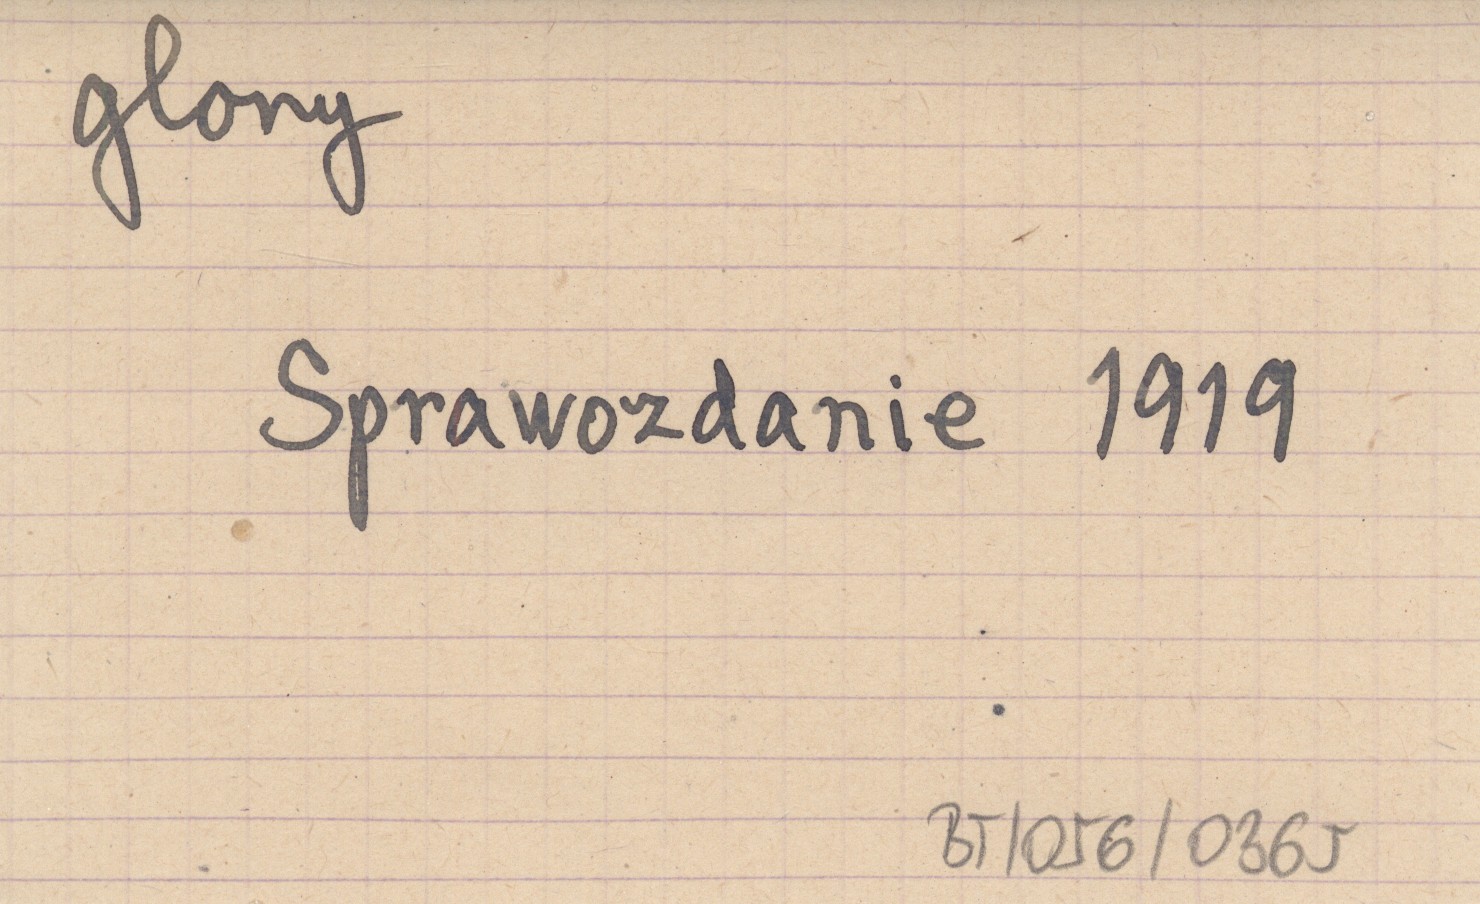 glony
Sprawozdanie 1919
BT/056/0365